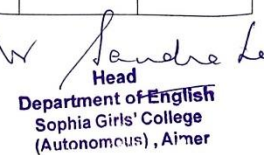 Sandra
Head
Department of English
Sophia Girls' College
(Autonomous) , Ajmer